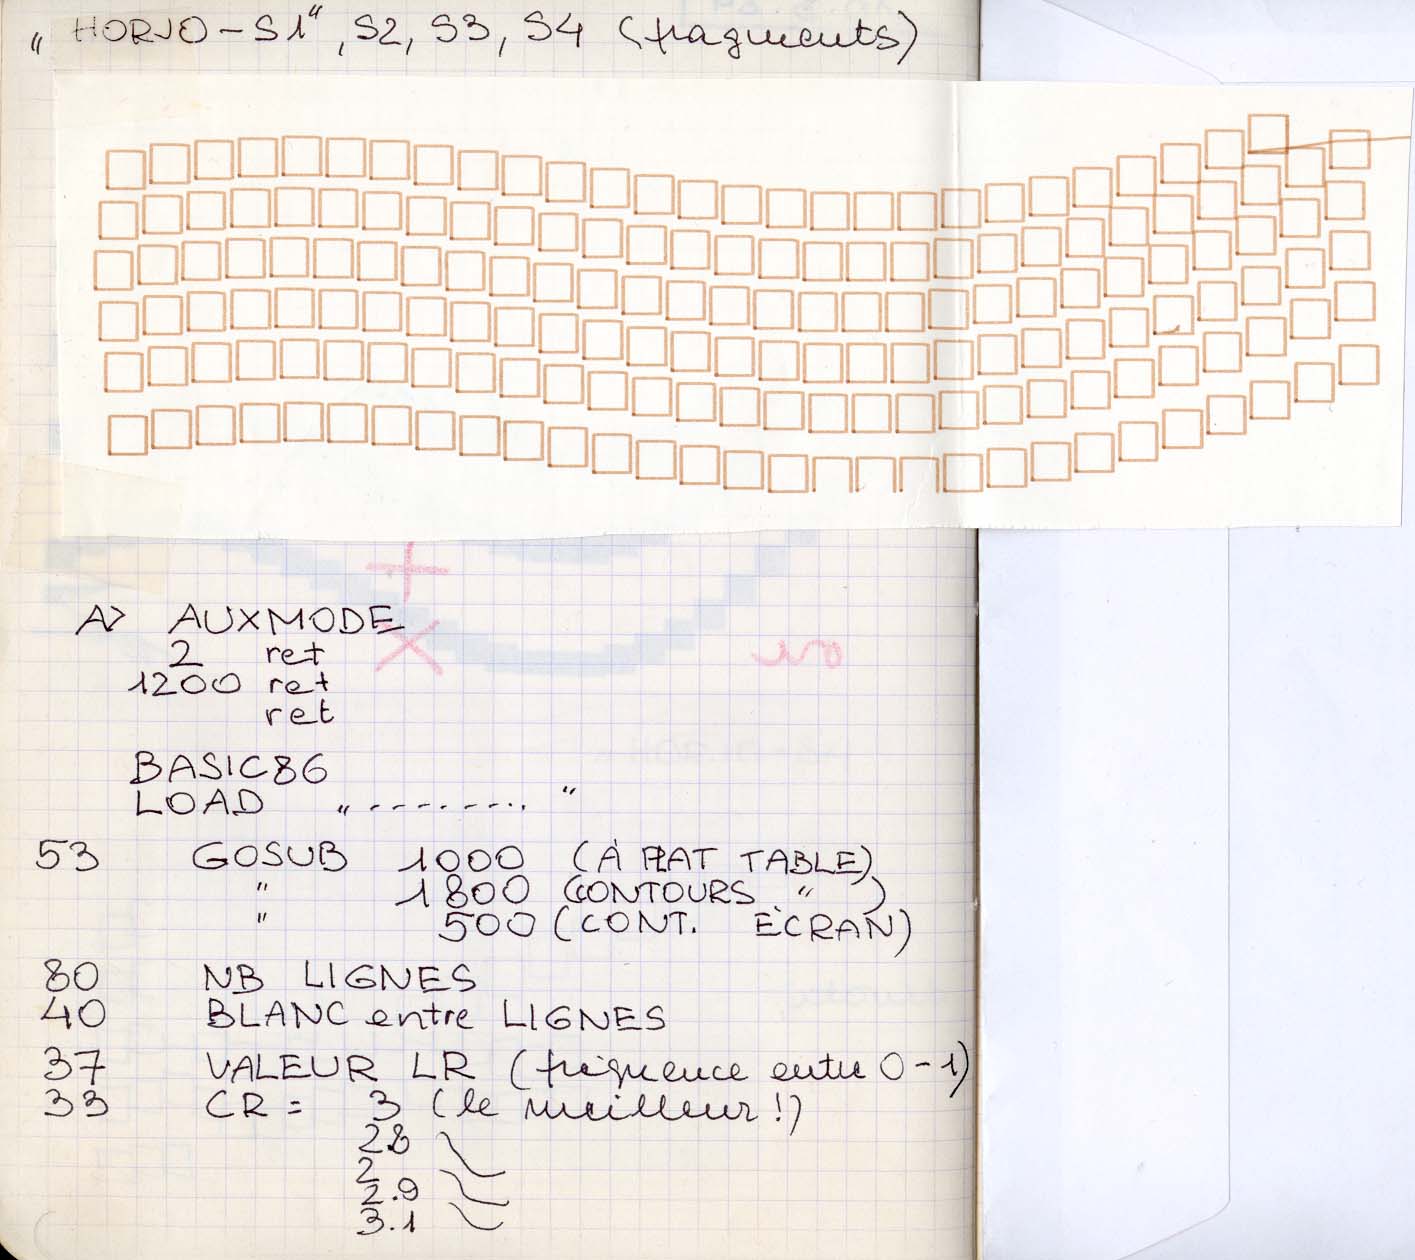 „ HORJO - S1", S2, S3, S4 (fragments)
A> AUXMODE
2 ret
1200 ret
ret
BASIC86
LOAD „ - - - - - - - . "
53 GOSUB 1000 (À PLAT TABLE)
" 1800 (CONTOURS " )
" 500 (CONT. ÉCRAN)
80 NB LIGNES
40 BLANC entre LIGNES
37 VALEUR LR (fréquence entre 0-1)
33 CR = 3 (le meilleur!)
28
2
2.9
3.1
ou